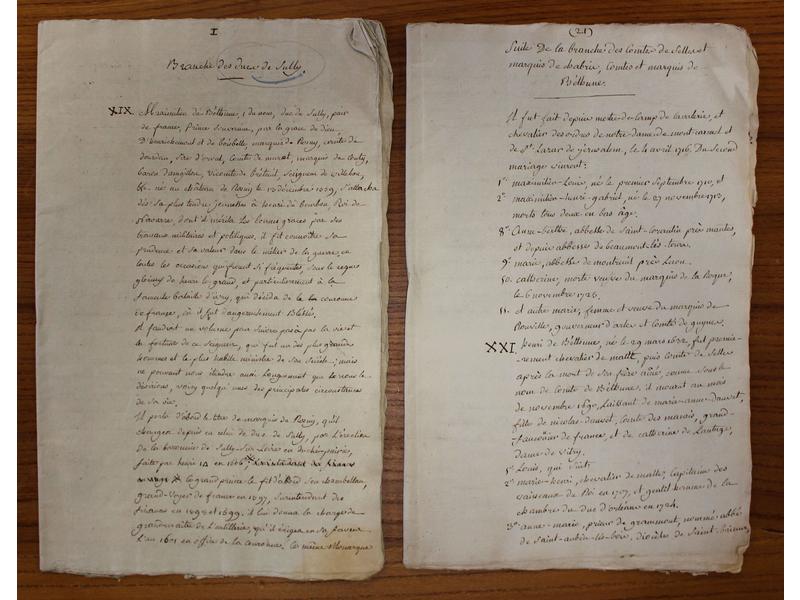 I
Branche des ducs de Sully.
XIX. Maximilien de Béthune, du nom, duc de Sully, pair
de france, Prince Souverain, par la grace de dieu,
D'henrichemont et de boisbelle, marquis de Rosny, comte de
dourdan, Sire d'orval, Comte de muret, marquis de Conty,
baron d'angillon, vicomte de breteuil, Seigneur de villebon,
&c. né au chateau de Rosny le 13 décembre 1559, S'attacha
dès Sa plus tendre jeunesse à henri de bourbon, Roi de
Navarre, dont il mérita Les bonnes graces par Ses
travaux militaires et politiques, il fit connoitre Sa
prudence et Sa valeur dans le métier de la guerre, en
toutes les occasions qui furent Si fréquentes, Sous le regne
glorieux de henri le grand, et particulierement à la
fameuse bataille d'ivry, qui décida de la couronne
de france, où il fut dangereusement Blessé.
il faudroit un volume pour Suivre pas à pas la vie et
la fortune de ce Seigneur, qui fut un des plus grands
hommes et le plus habile ministre de Son Siecle; mais
ne pouvant nous étendre aussi Longuement que nous le
désirions, voicy quelqu'unes des principales circonstances
de Sa vie.
Il porta d'abord le titre de marquis de Rosny, qu'il
changea depuis en celui de duc de Sully, par L'érection
De la baronnie de Sully-Sur-Loire en duché-pairie,
faite par henri IV en 1606
Le grand prince le fit d'abord Son chambellan,
grand-Voyer de france en 1597, Surintendant des
finances en 1598 et 1599, il lui donna la charge de
grand-maitre de L'artillerie, qu'il érigea en Sa faveur
L'an 1601 en office de la couronne. Ce même Monarque
(21)
Suite De la branche des Comtes de Selles et
marquis de chabris, Comtes et marquis de
Béthune.
Il fut fait depuis mestre-de-camp de cavalerie, et
chevalier des ordres de notre-dame de mont-carmel et
de St. Lazare de jerusalem, le 4 avril 1716. Du Second
mariage vinrent:
1°. maximilien-Louis, né le premier Septembre 1710, et
2°. maximilien-henri-gabriel, né le 27 novembre 1713,
morts tous deux en bas âge.
8°. Anne-berthe, abbesse de Saint-Corentin près mantes,
et depuis abbesse de beaumont-lès-tours.
9°. marie, abbesse de montreuil près Laon.
10. catherine, morte veuve du marquis de la Roque,
le 6 novembre 1725.
11. et autre marie, femme et veuve du marquis de
Rouville, gouverneur d'ardres et Comté de guynes.
XXI. henri de Béthune, né le 29 mars 1632, fut premie-
rement chevalier de malthe, puis Comte de Selles
après la mort de Son frère aîné, connu Sous le
nom de Comte de Béthune. il mourut au mois
de novembre 1690, Laissant de marie-anne-dauvet,
fille de nicolas-dauvet, Comte des marais, grand-
fauconier de france, et de catherine de Lantage,
Dame de Vitry.
1°. Louis, qui Suit.
2°. marie-henri, chevalier de malthe, Capitaine des
vaisseaux du Roi en 1707, et gentil homme de la
chambre du duc d'orléans en 1724.
3°. anne-marie, prieur de grammont, nommé abbé
de Saint-aubin-les-bois, diocèse de Saint-brieux,